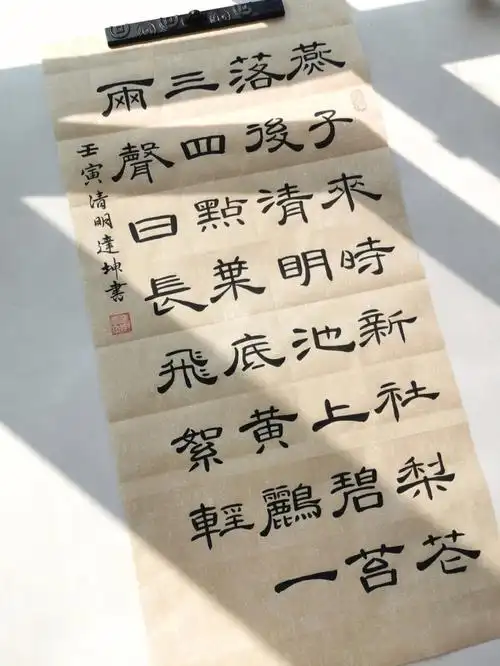 燕子來時新社梨花
落後清明池上碧苔
三四點葉底黃鸝一
兩聲日長飛絮輕
壬寅清明達坤書